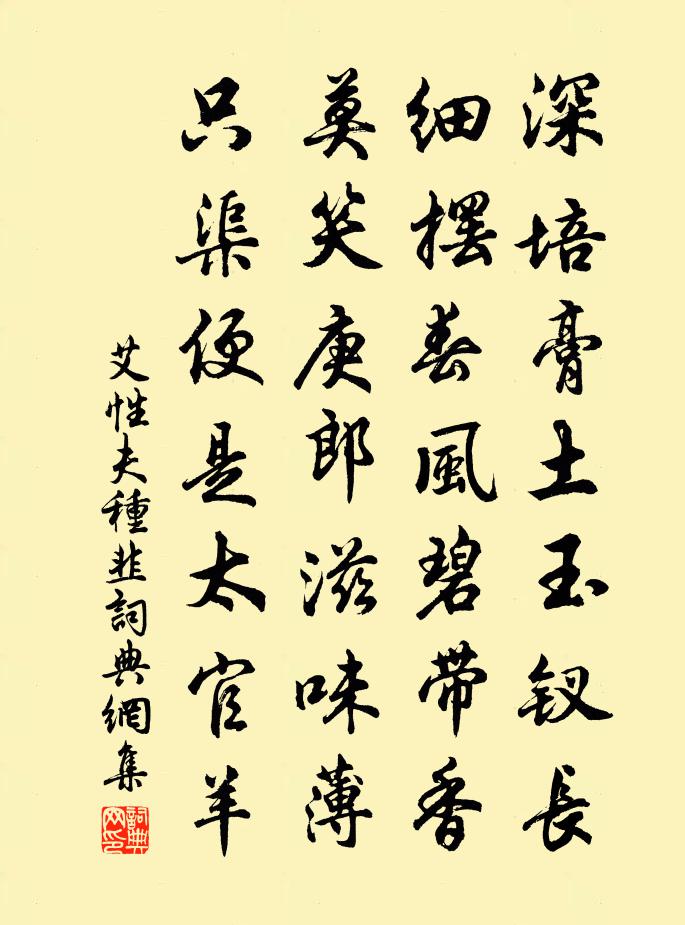 深培膏土玉釵長
細擺春風碧帶香
莫笑庚郎滋味薄
只渠便是太官羊
艾性夫種韭詞典網集
詞典網印